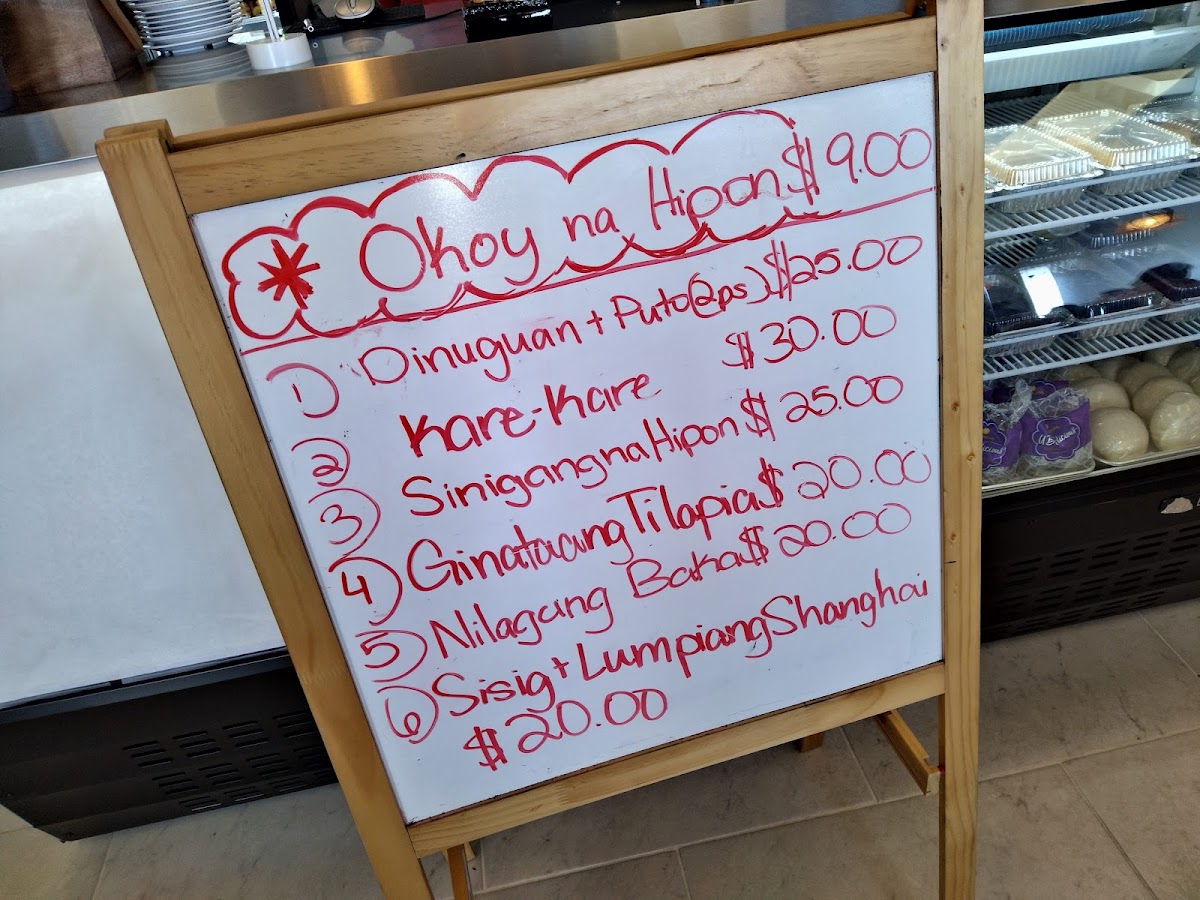 * Okoy na Hipon $9.00
1) Dinuguan + Puto(2ps) $25.00
2) Kare-Kare $30.00
3) Sinigang na Hipon $25.00
4) Ginataang Tilapia $20.00
5) Nilagang Baka $20.00
6) Sisig + Lumpiang Shanghai
$20.00